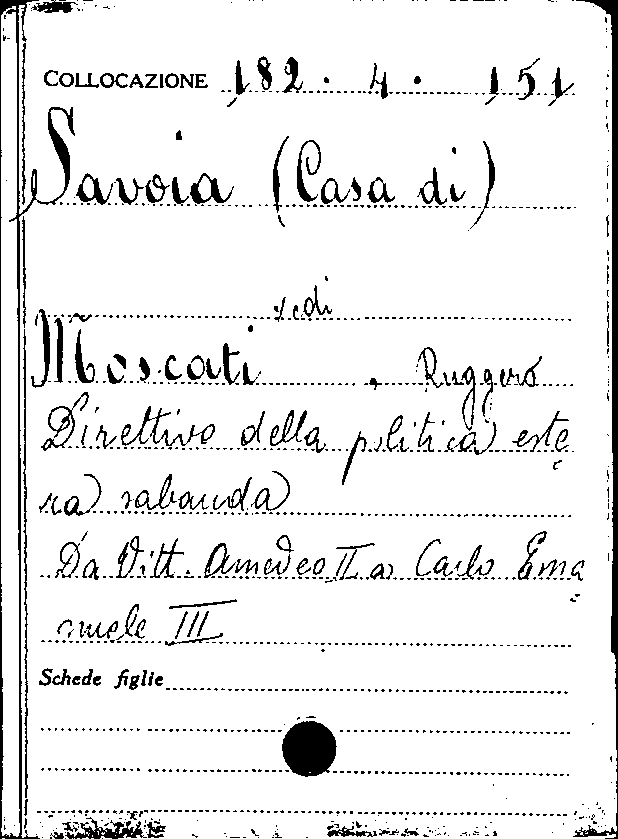 COLLOCAZIONE 182. 4. 151
Savoia (Casa di)
vedi
Moscati, Ruggero
Direttive della politica este=
ra sabauda
Da Vitt. Amedeo II a Carlo Ema=
nuele III
Schede figlie